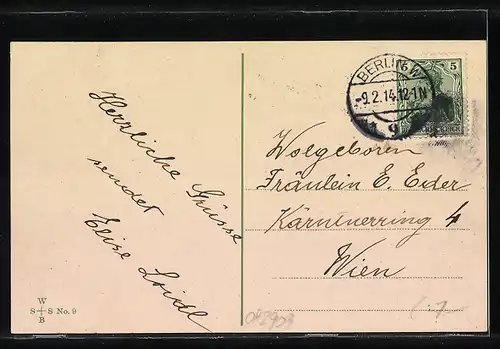 Herzliche Grüsse
sendet
Elise
W
S + S No. 9
B
BERLIN W
-9.2.14.12-1N
9
5
Wolgeboren
Fräulein E. Eder
Kärntnerring 4
Wien